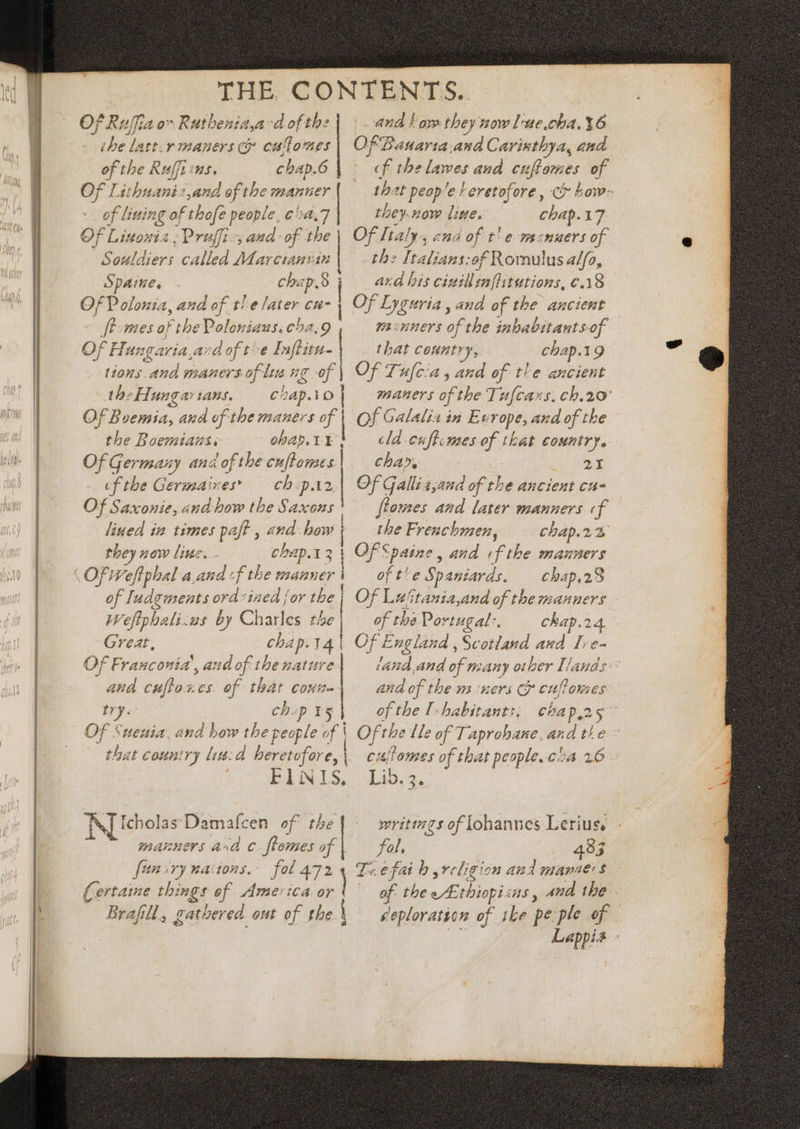 THE CONTENTS.
Of Ruſſia or Ruthenia, and of the
the latter maners & cuſtomes
of the Ruſſians. chap.6
Of Lithuania, and of the manner
of liuing of thoſe people, cha.7
Of Liuonia, Pruſſia, and of the
Souldiers called Marcianvin
Spaine. chap.8
Of Polonia, and of the later cu-
ſtomes of the Polonians. cha.9
Of Hungaria, and of the Inſtitu-
tions and maners of liuing of
the Hungarians. chap.10
Of Boemia, and of the maners of
the Boemians. chap.11
Of Germany and of the cuſtomes
of the Germaines chap.12
Of Saxonie, and how the Saxons
liued in times paſt, and how
they now liue. chap.13
Of Weſtphalia, and of the manner
of Iudgments ordained for the
Weſtphalians by Charles the
Great, chap.14
Of Franconia, and of the nature
and cuſtomes of that coun-
try. chap 15
Of Sueuia, and how the people of
that country liued heretofore,
and how they now liue, cha. 16
Of Bauaria and Carinthya, and
of the lawes and cuſtomes of
that people heretofore, & how
they now liue. chap.17
Of Italy, and of the manners of
the Italians: of Romulus alſo,
and his ciuill inſtitutions, c.18
Of Lyguria, and of the ancient
manners of the inhabitants of
that country, chap.19
Of Tuſcia, and of the ancient
maners of the Tuſcans. ch.20
Of Galalia in Europe, and of the
old cuſtomes of that country.
chap. 21
Of Gallia, and of the ancient cu-
ſtomes and later manners of
the Frenchmen, chap.22
Of Spaine, and of the manners
of the Spaniards. chap.23
Of Luſitania, and of the manners
of the Portugals. chap.24
Of England, Scotland and Ire-
land, and of many other Ilands
and of the manners & cuſtomes
of the Inhabitants. chap.25
Of the Ile of Taprobane, and the
cuſtomes of that people. cha 26
Lib. 3.
FINIS.
NIcholas Damaſcen of the
manners and cuſtomes of
ſundry nations. fol 472
Certaine things of America or
Braſill, gathered out of the
writings of Iohannes Lerius,
fol. 483
The faith, religion and manners
of the Æthiopians, and the
deploration of the people of
Lappia